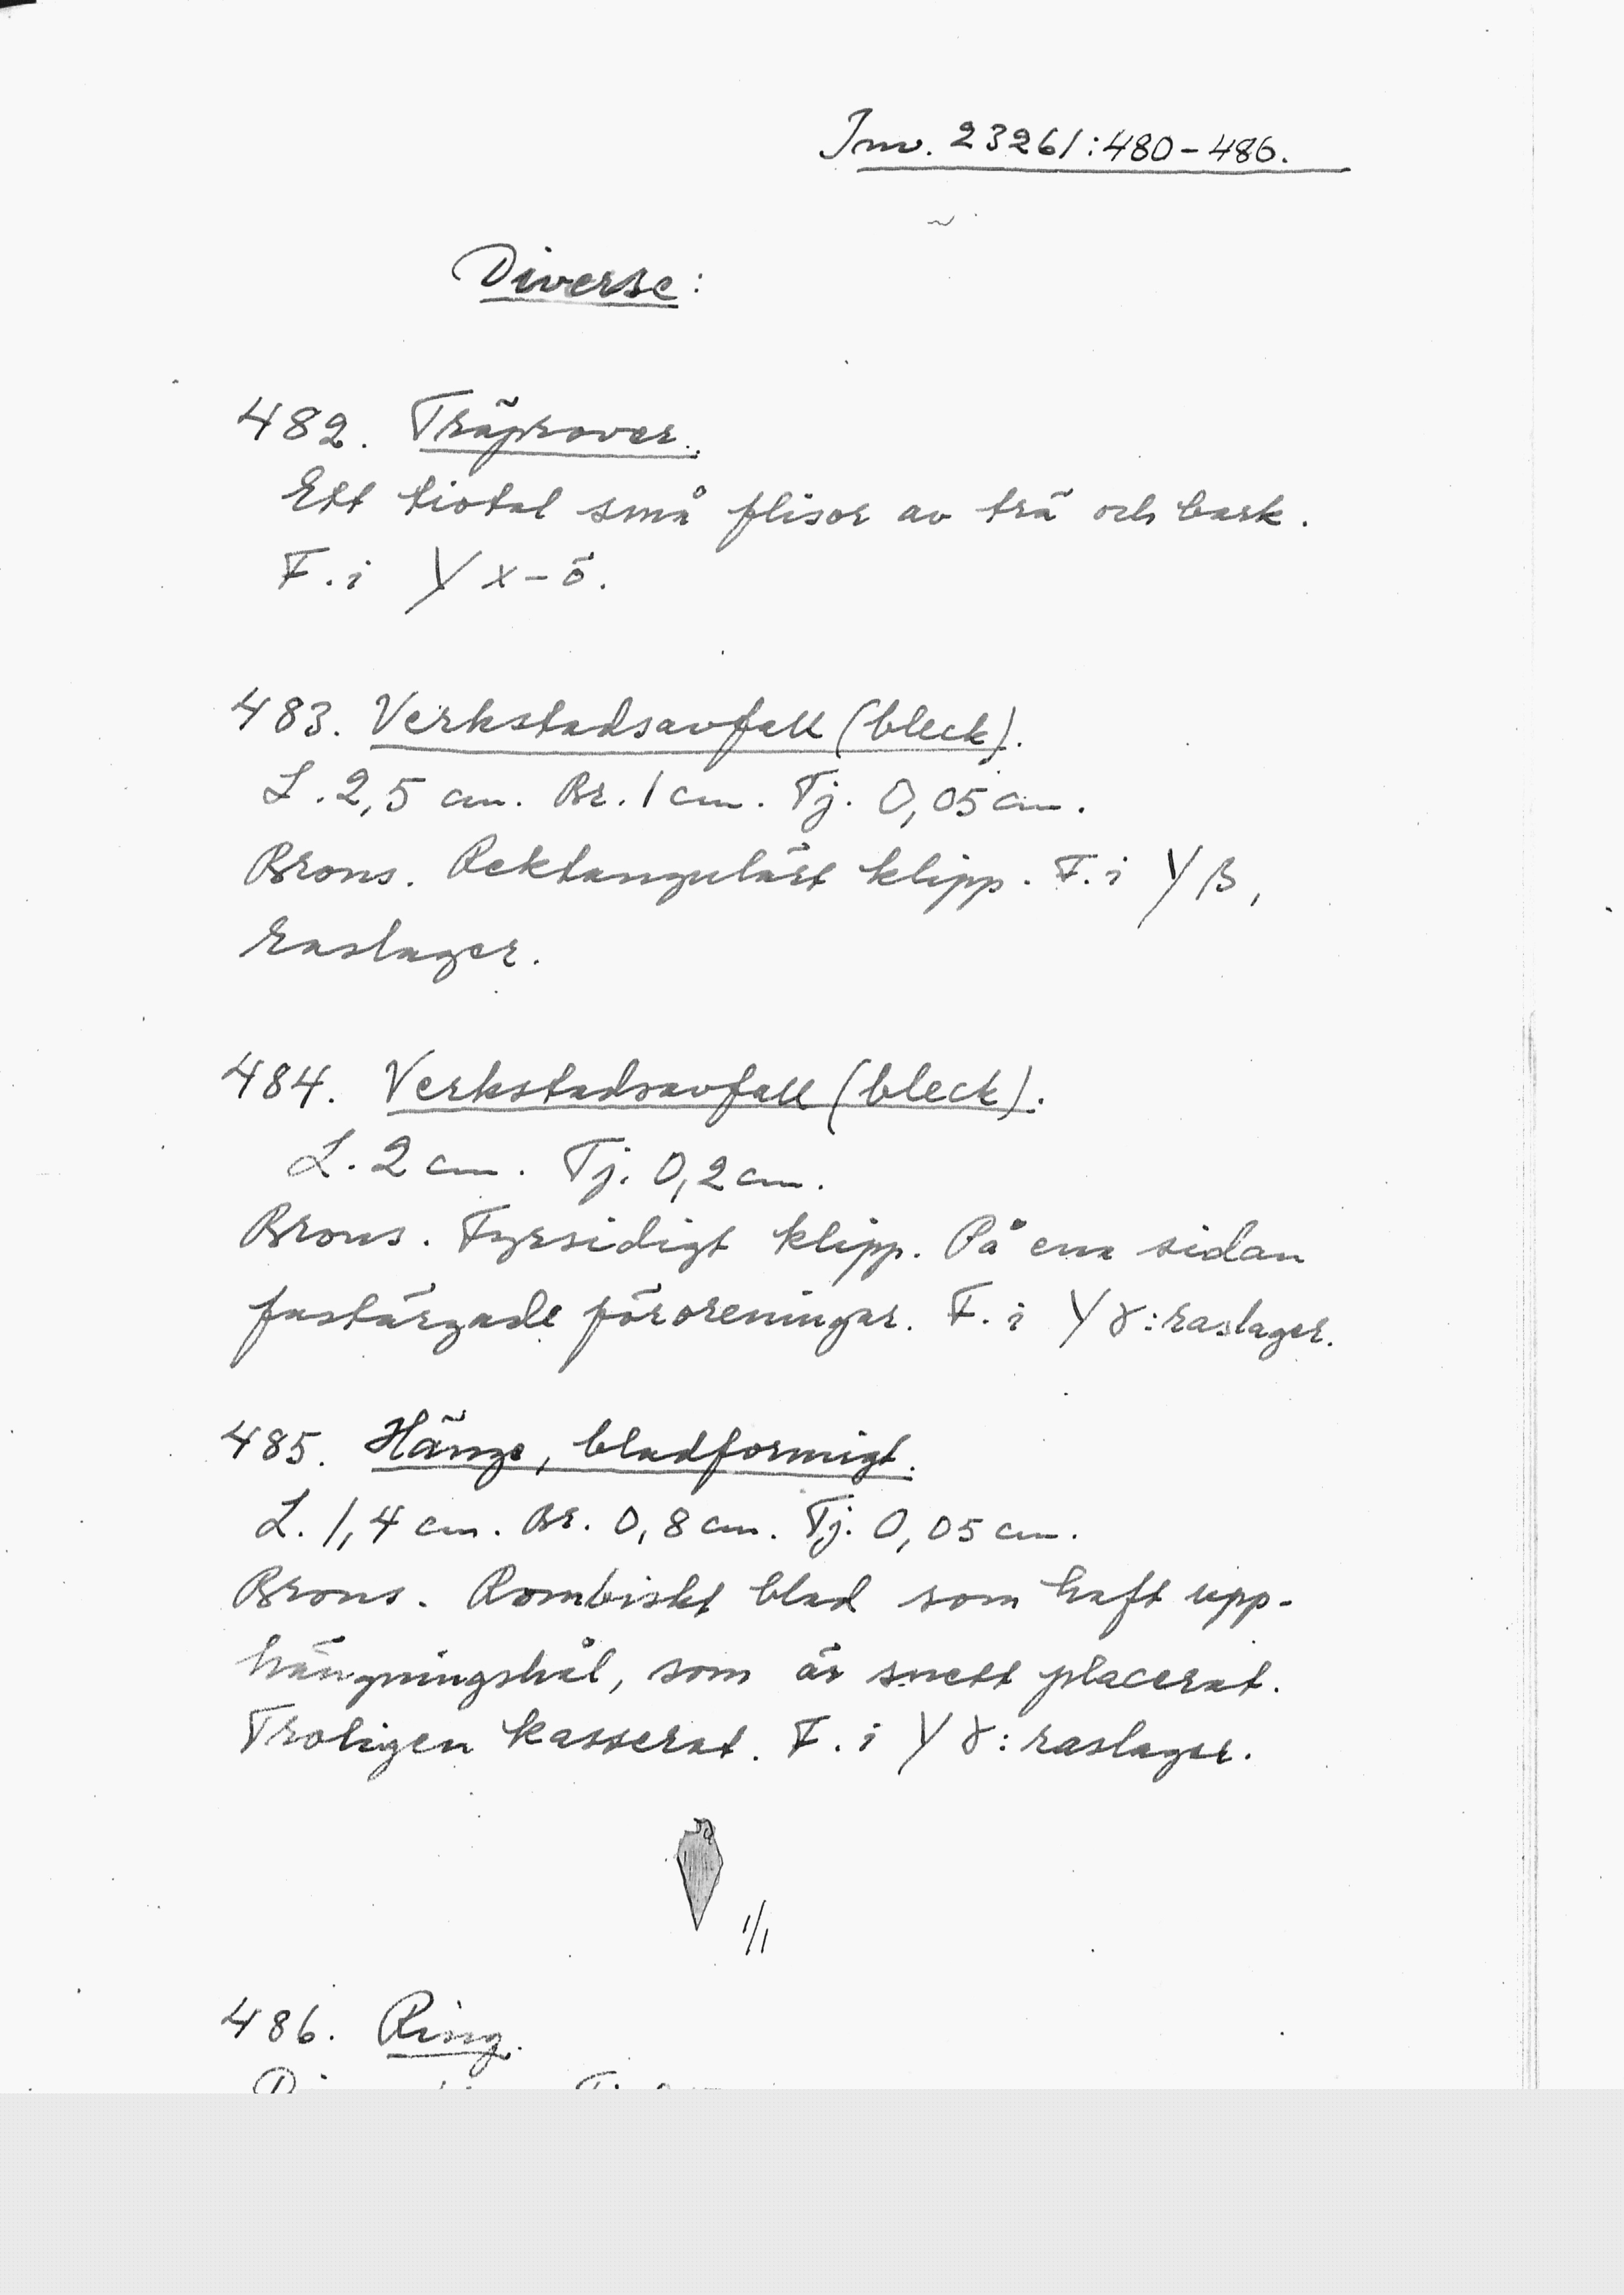 Inv. 23261:480-486.
Diverse:
482. Träprover.
Ett tiotal små flisor av trä och bark.
F. i Y x-ö.
483. Verkstadsavfall (bleck).
L. 2,5 cm. Br. 1 cm. Tj. 0,05 cm.
Brons. Rektangulärt klipp. F. i Y β,
raslager.
484. Verkstadsavfall (bleck).
L. 2 cm. Tj. 0,2 cm.
Brons. Fyrsidigt klipp. På ena sidan
fastärgade föroreningar. F. i Y γ: raslager.
485. Hänge, bladformigt.
L. 1,4 cm. Br. 0,8 cm. Tj. 0,05 cm.
Brons. Rombiskt blad som haft upp-
hängningshål, som är snett placerat.
Troligen kasserat. F. i Y γ: raslager.
1/1
486. Ring.